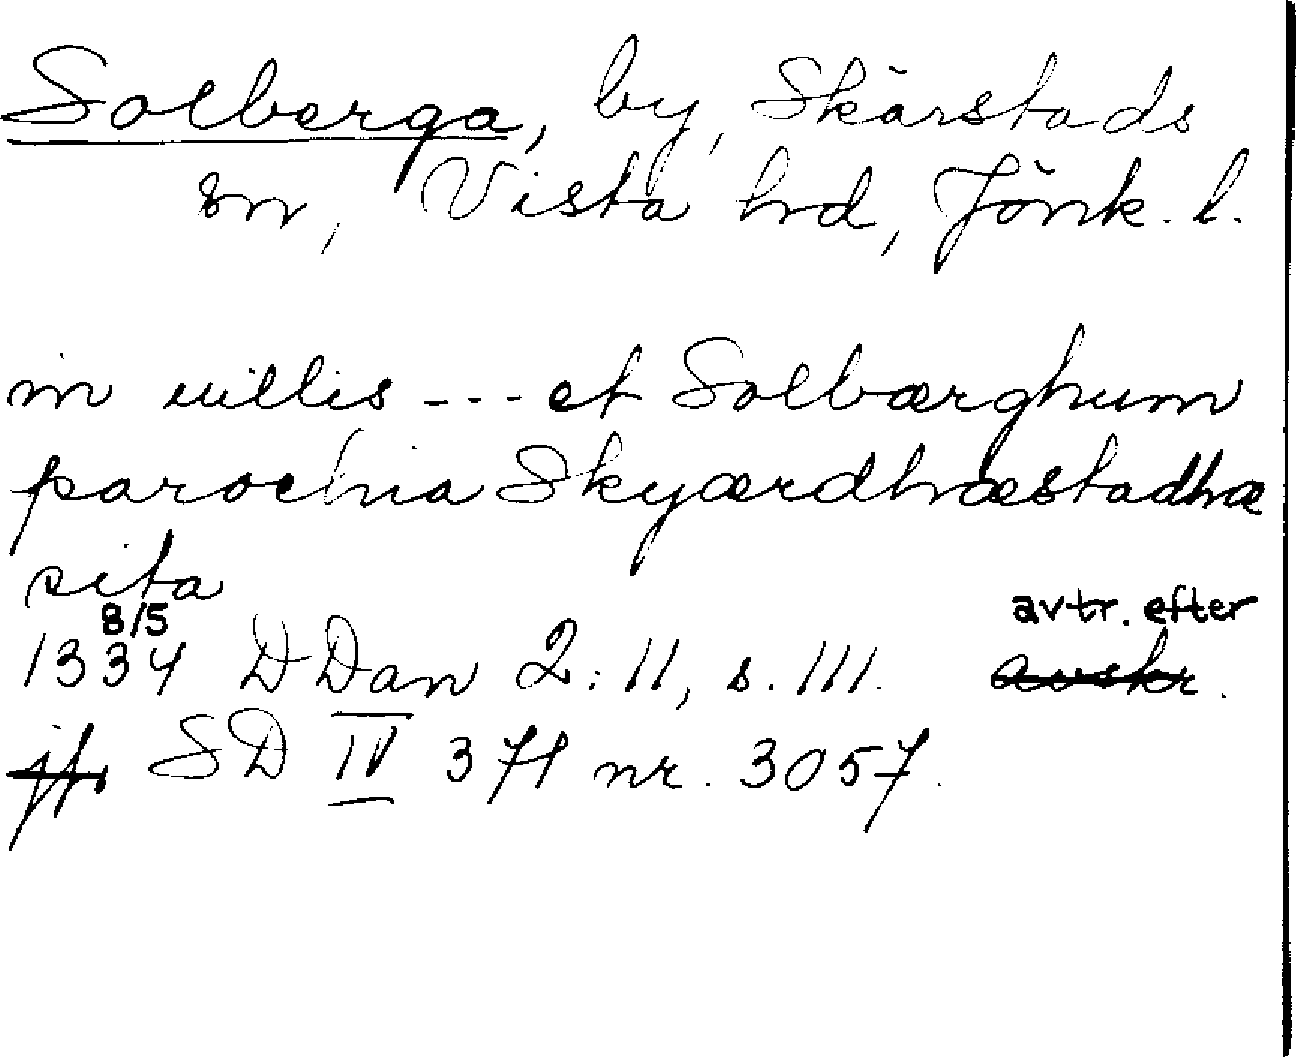 Solberga, by, Skärstads
sn, Vista hrd, Jönk. l.
in uillis --- et Solbærghum
parochia Skyærdhæstadhæ
sita
8/5 avtr. efter
1334 DDan 2:11, s. 111. avskr.
jfr SD IV 371 nr. 3057.